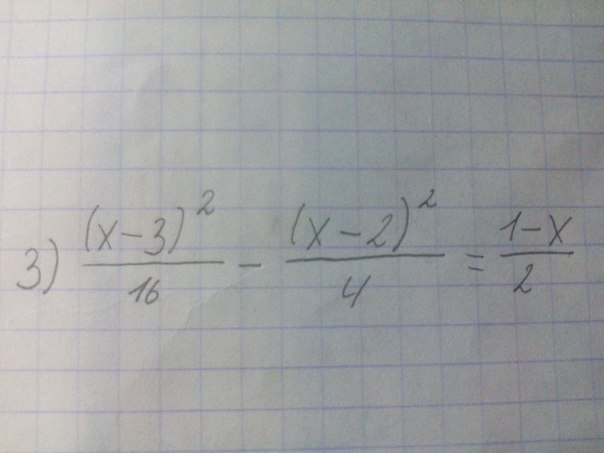 3) (x-3)²/16 - (x-2)²/4 = 1-x/2